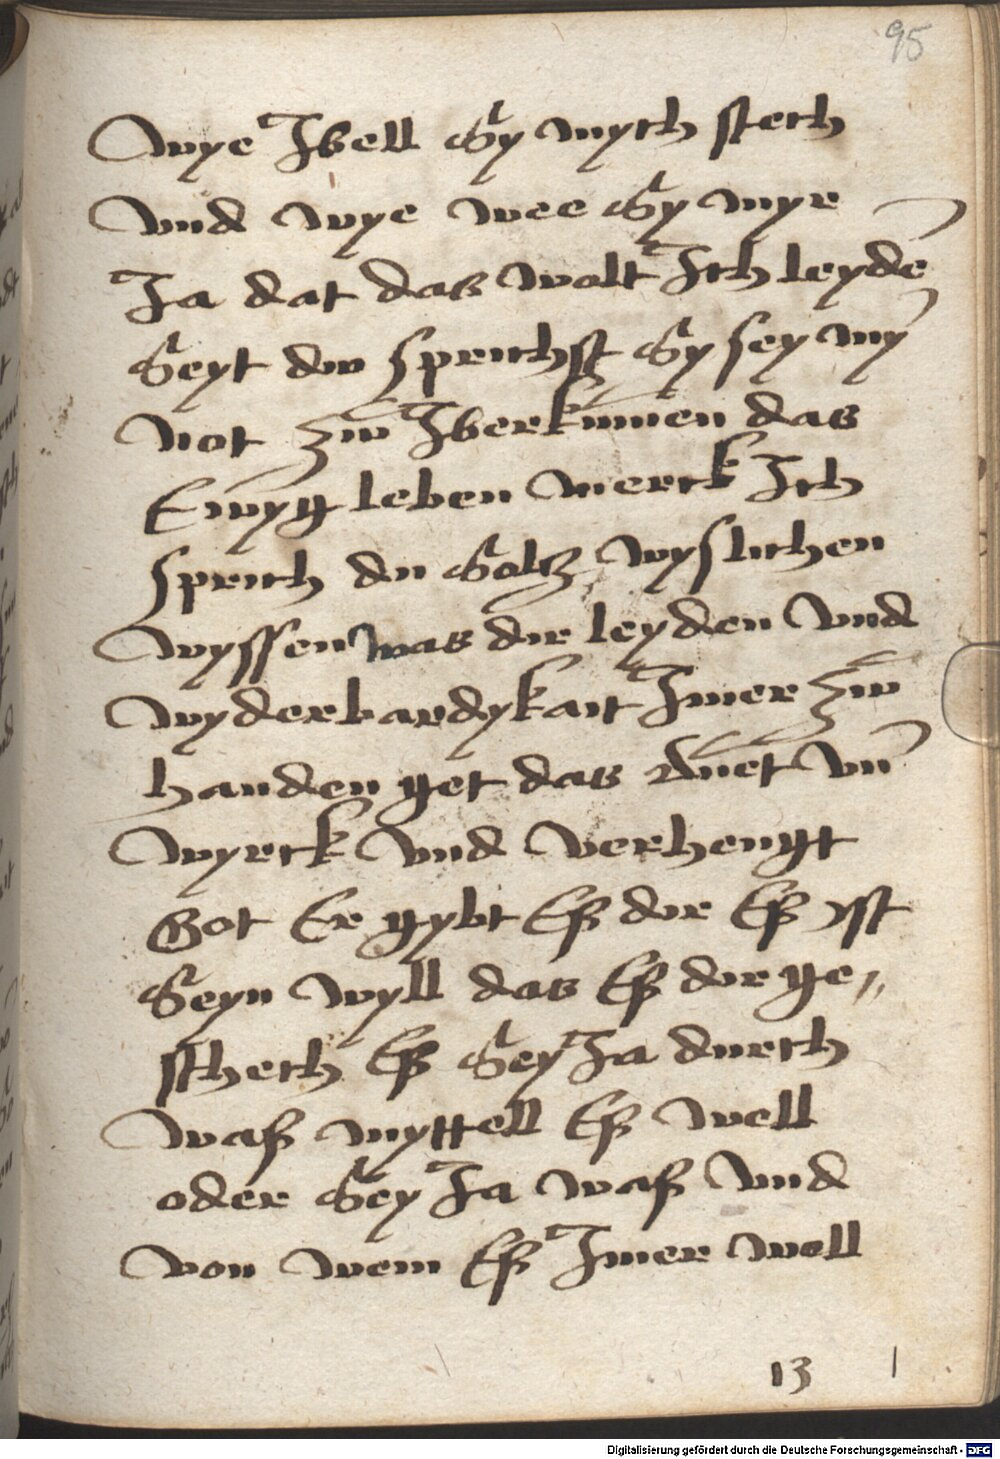 95
wye Ibell Sy mych stech
vnd wye wee Sy myr
Ja dat das wolt Ich leydē
Seyt du sprichst Sy sey mỹ
not zw̄ Iberkūmen das
Ewyg leben merck Ich
sprich du Solz wyslichen
wyssen was dir leyden vnd
wyderbardykait Imer zw̄
handen get das duet vñ
wyrck vnd verhengt
Got Er gybt Eß dir Eß yst
Seyn wyll das Eß dir ge„
schech Eß Sey Ja durch
waß myttell Eß well
oder Sey Ja waß vnd
von wem Eß Imer woll
13
Digitalisierung gefördert durch die Deutsche Forschungsgemeinschaft - DFG